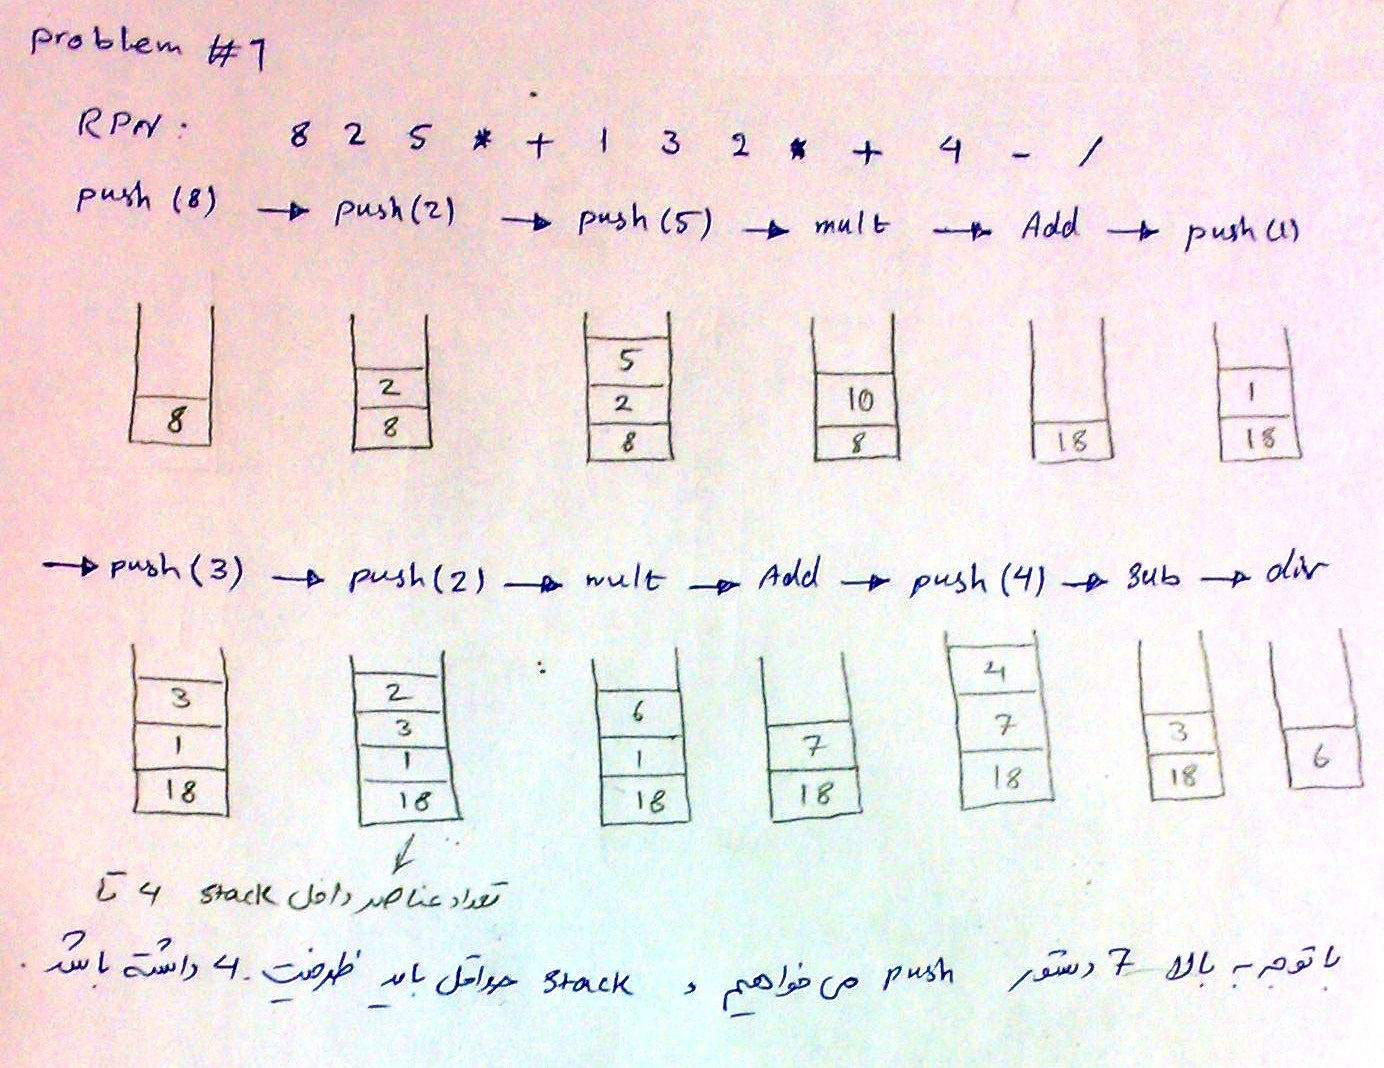 problem #1
RPN: 8 2 5 * + 1 3 2 * + 4 - /
push (8) → push(2) → push(5) → mult → Add → push(1)
8
2
8
5
2
8
10
8
18
1
18
→ push(3) → push(2) → mult → Add → push(4) → sub → div
3
1
18
2
3
1
18
6
1
18
7
18
4
7
18
3
18
6
تعداد عناصر داخل stack 4 تا
با توجه به بالا 7 دستور push می خواهیم و stack حداقل باید ظرفیت 4 داشته باشد.